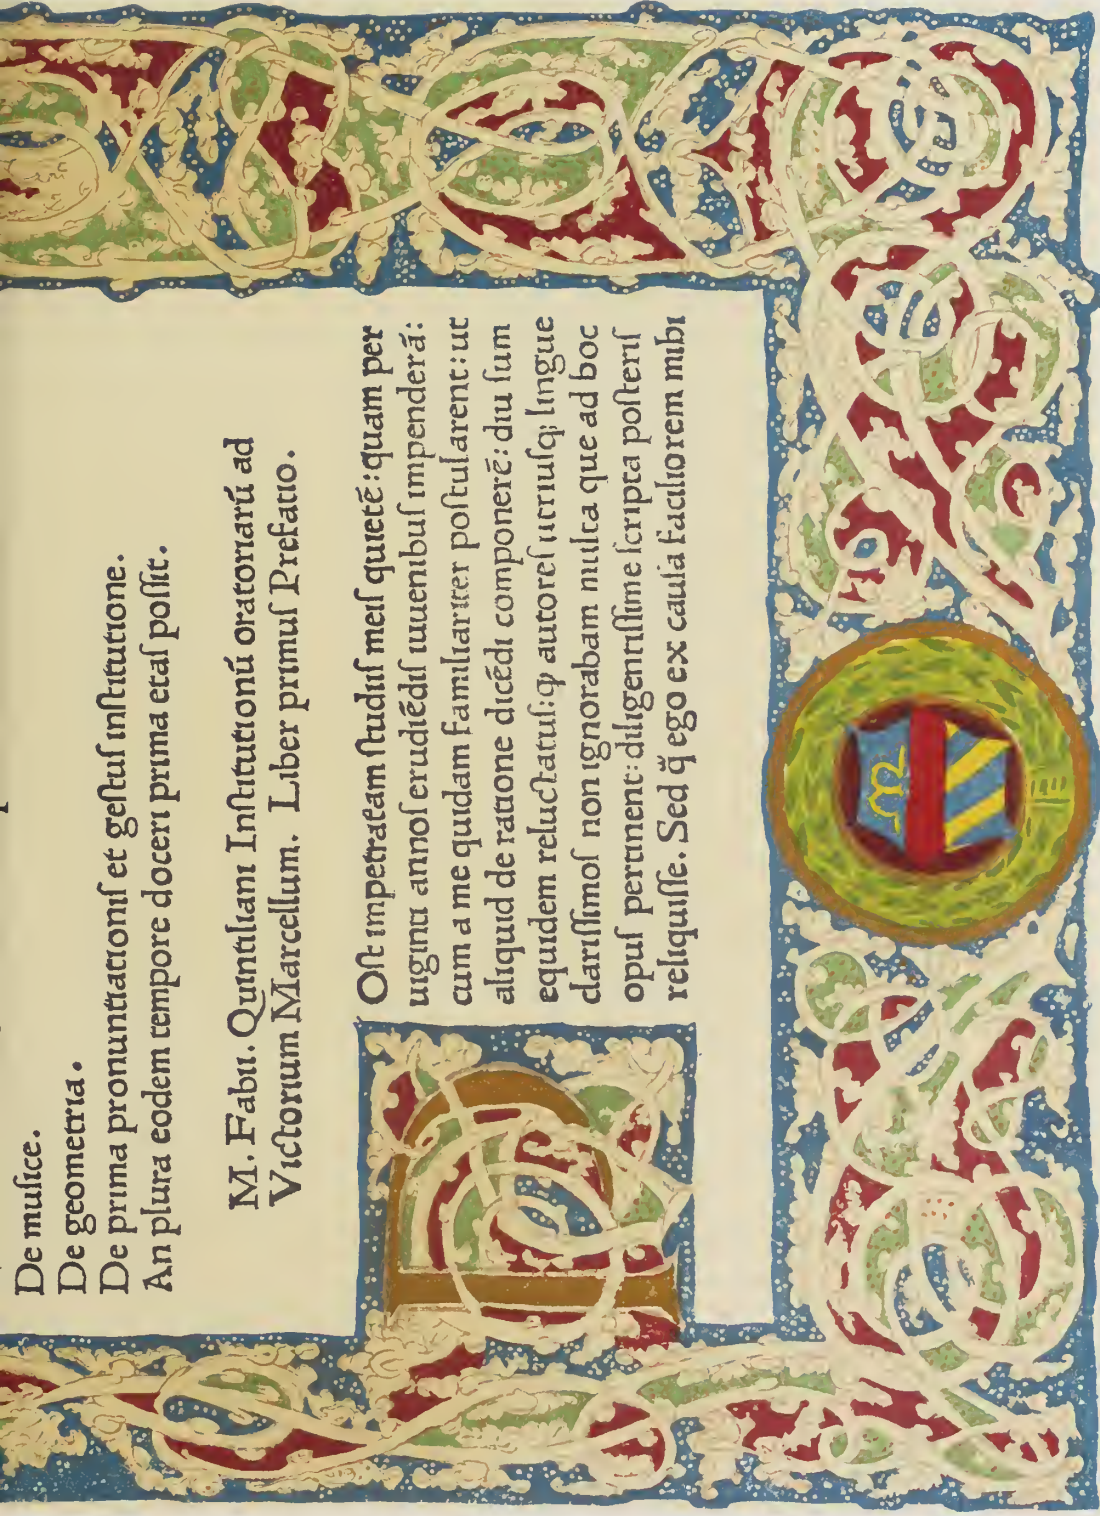 De muſice.
De geometria.
De prima pronuntiationiſ et geſtuſ inſtitutione.
An plura eodem tempore doceri prima etaſ poſſit.
M. Fabii. Quintiliani Inſtitutionū oratoriarū ad
Victorium Marcellum. Liber primuſ Prefatio.
POſt impetratam ſtudiiſ meiſ quietē: quam per
uiginti annoſ erudiēdiſ iuuenibuſ impenderā:
cum a me quidam familiariter poſtularent: ut
aliquid de ratione dicēdi componerē: diu ſum
equidem reluctatuſ: ꝙ autoreſ utriuſq; lingue
clariſſimoſ non ignorabam multa que ad hoc
opuſ pertinent: diligentiſſime ſcripta poſteriſ
reliquiſſe. Sed q̄ ego ex cauſa faciliorem mihi